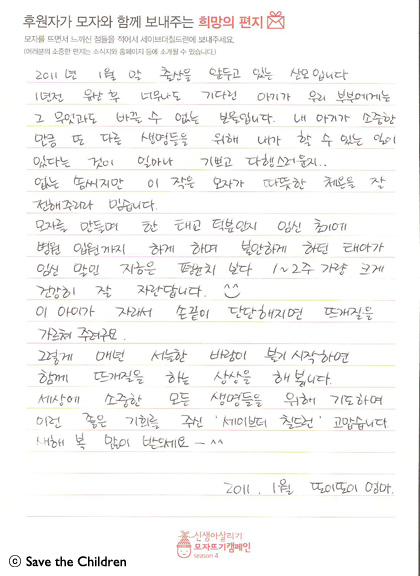 후원자가 모자와 함께 보내주는 희망의 편지
모자를 뜨면서 느끼신 점들을 적어서 세이브더칠드런에 보내주세요.
(여러분의 소중한 편지는 소식지와 홈페이지 등에 소개될 수 있습니다)
2011년 1월 막 출산을 앞두고 있는 산모입니다
1년전 유산 후 너무나도 기다린 아기가 우리 부부에게는
그 무엇과도 바꿀 수 없는 보물입니다. 내 아기가 소중한
만큼 또 다른 생명들을 위해 내가 할 수 있는 일이
있다는 것이 얼마나 기쁘고 다행스러운지..
없는 솜씨지만 이 작은 모자가 따뜻한 체온을 잘
전해주리라 믿습니다.
모자를 만들며 한 태교 덕분인지 임신 초기에
병원 입원까지 하게 하며 불안하게 하던 태아가
임신 말인 지금은 평균치 보다 1~2주 가량 크게
건강히 잘 자란답니다.
이 아이가 자라서 손끝이 단단해지면 뜨개질을
가르쳐 주려구요.
그렇게 매년 서늘한 바람이 불기 시작하면
함께 뜨개질을 하는 상상을 해 봅니다.
세상에 소중한 모든 생명들을 위해 기도하며
이런 좋은 기회를 주신 '세이브더 칠드런' 고맙습니다
새해 복 많이 받으세요 ~ ^^
2011. 1월 또이또이 엄마.
신생아살리기
모자뜨기캠페인
season 4
ⓒ Save the Children